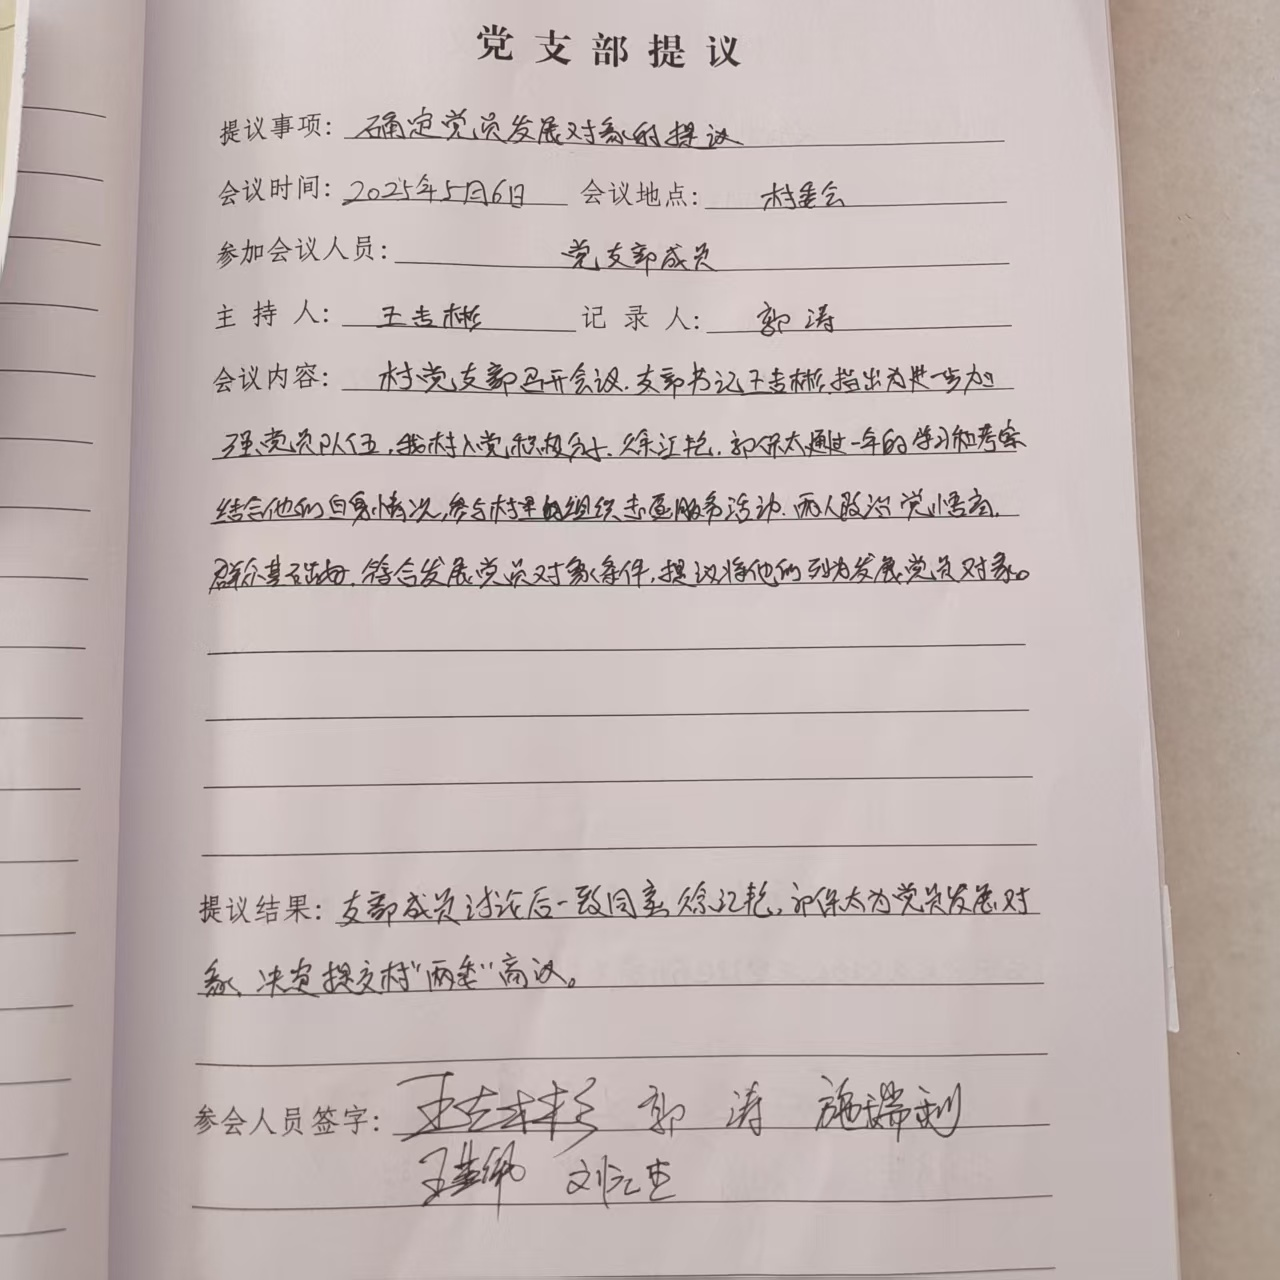 党支部提议
提议事项：确定党员发展对象的提议
会议时间：2025年5月6日 会议地点：村委会
参加会议人员：党支部成员
主持人：王吉彬 记录人：郭涛
会议内容：村党支部召开会议，支部书记王吉彬指出为进一步加
强党员队伍，我村入党积极分子，徐江艳，郭保太通过一年的学习和考察
结合他们自身情况，参与村里的组织志愿服务活动，两人政治觉悟高，
群众基础好，符合发展党员对象条件，提议将他们列为发展党员对象。
提议结果：支部成员讨论后一致同意徐江艳，郭保太为党员发展对
象，决定提交村“两委”商议。
参会人员签字：王吉彬 郭涛 施瑞利
王 刘元杰